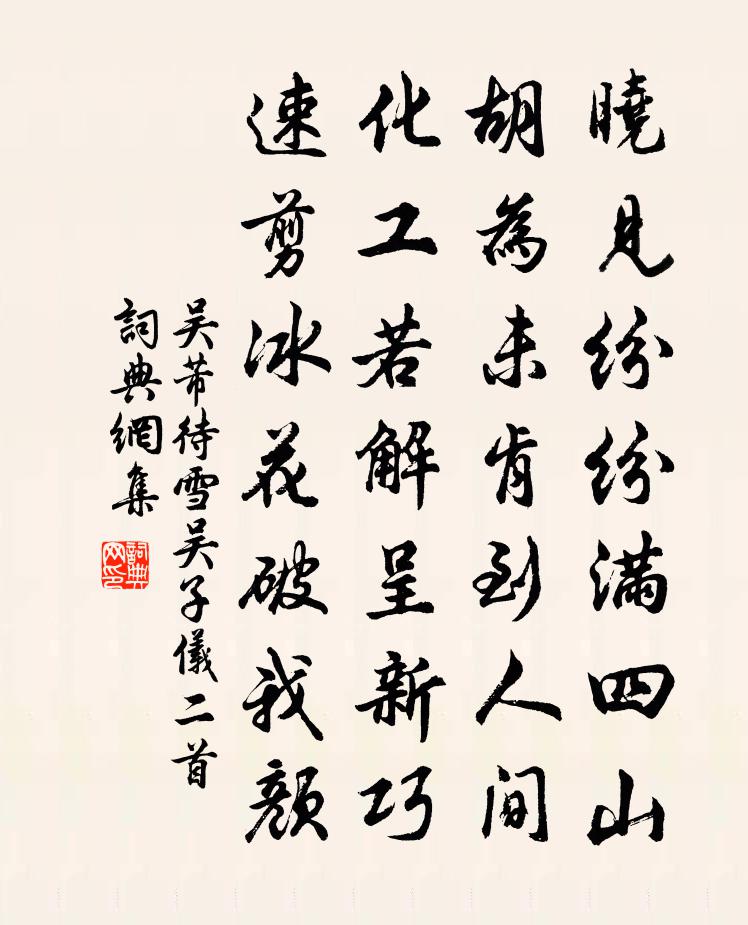 曉見紛紛滿四山
胡為未肯到人間
化工若解呈新巧
速剪冰花破我顏
吴芾待雪吴子儀二首
詞典網集
詞典网印